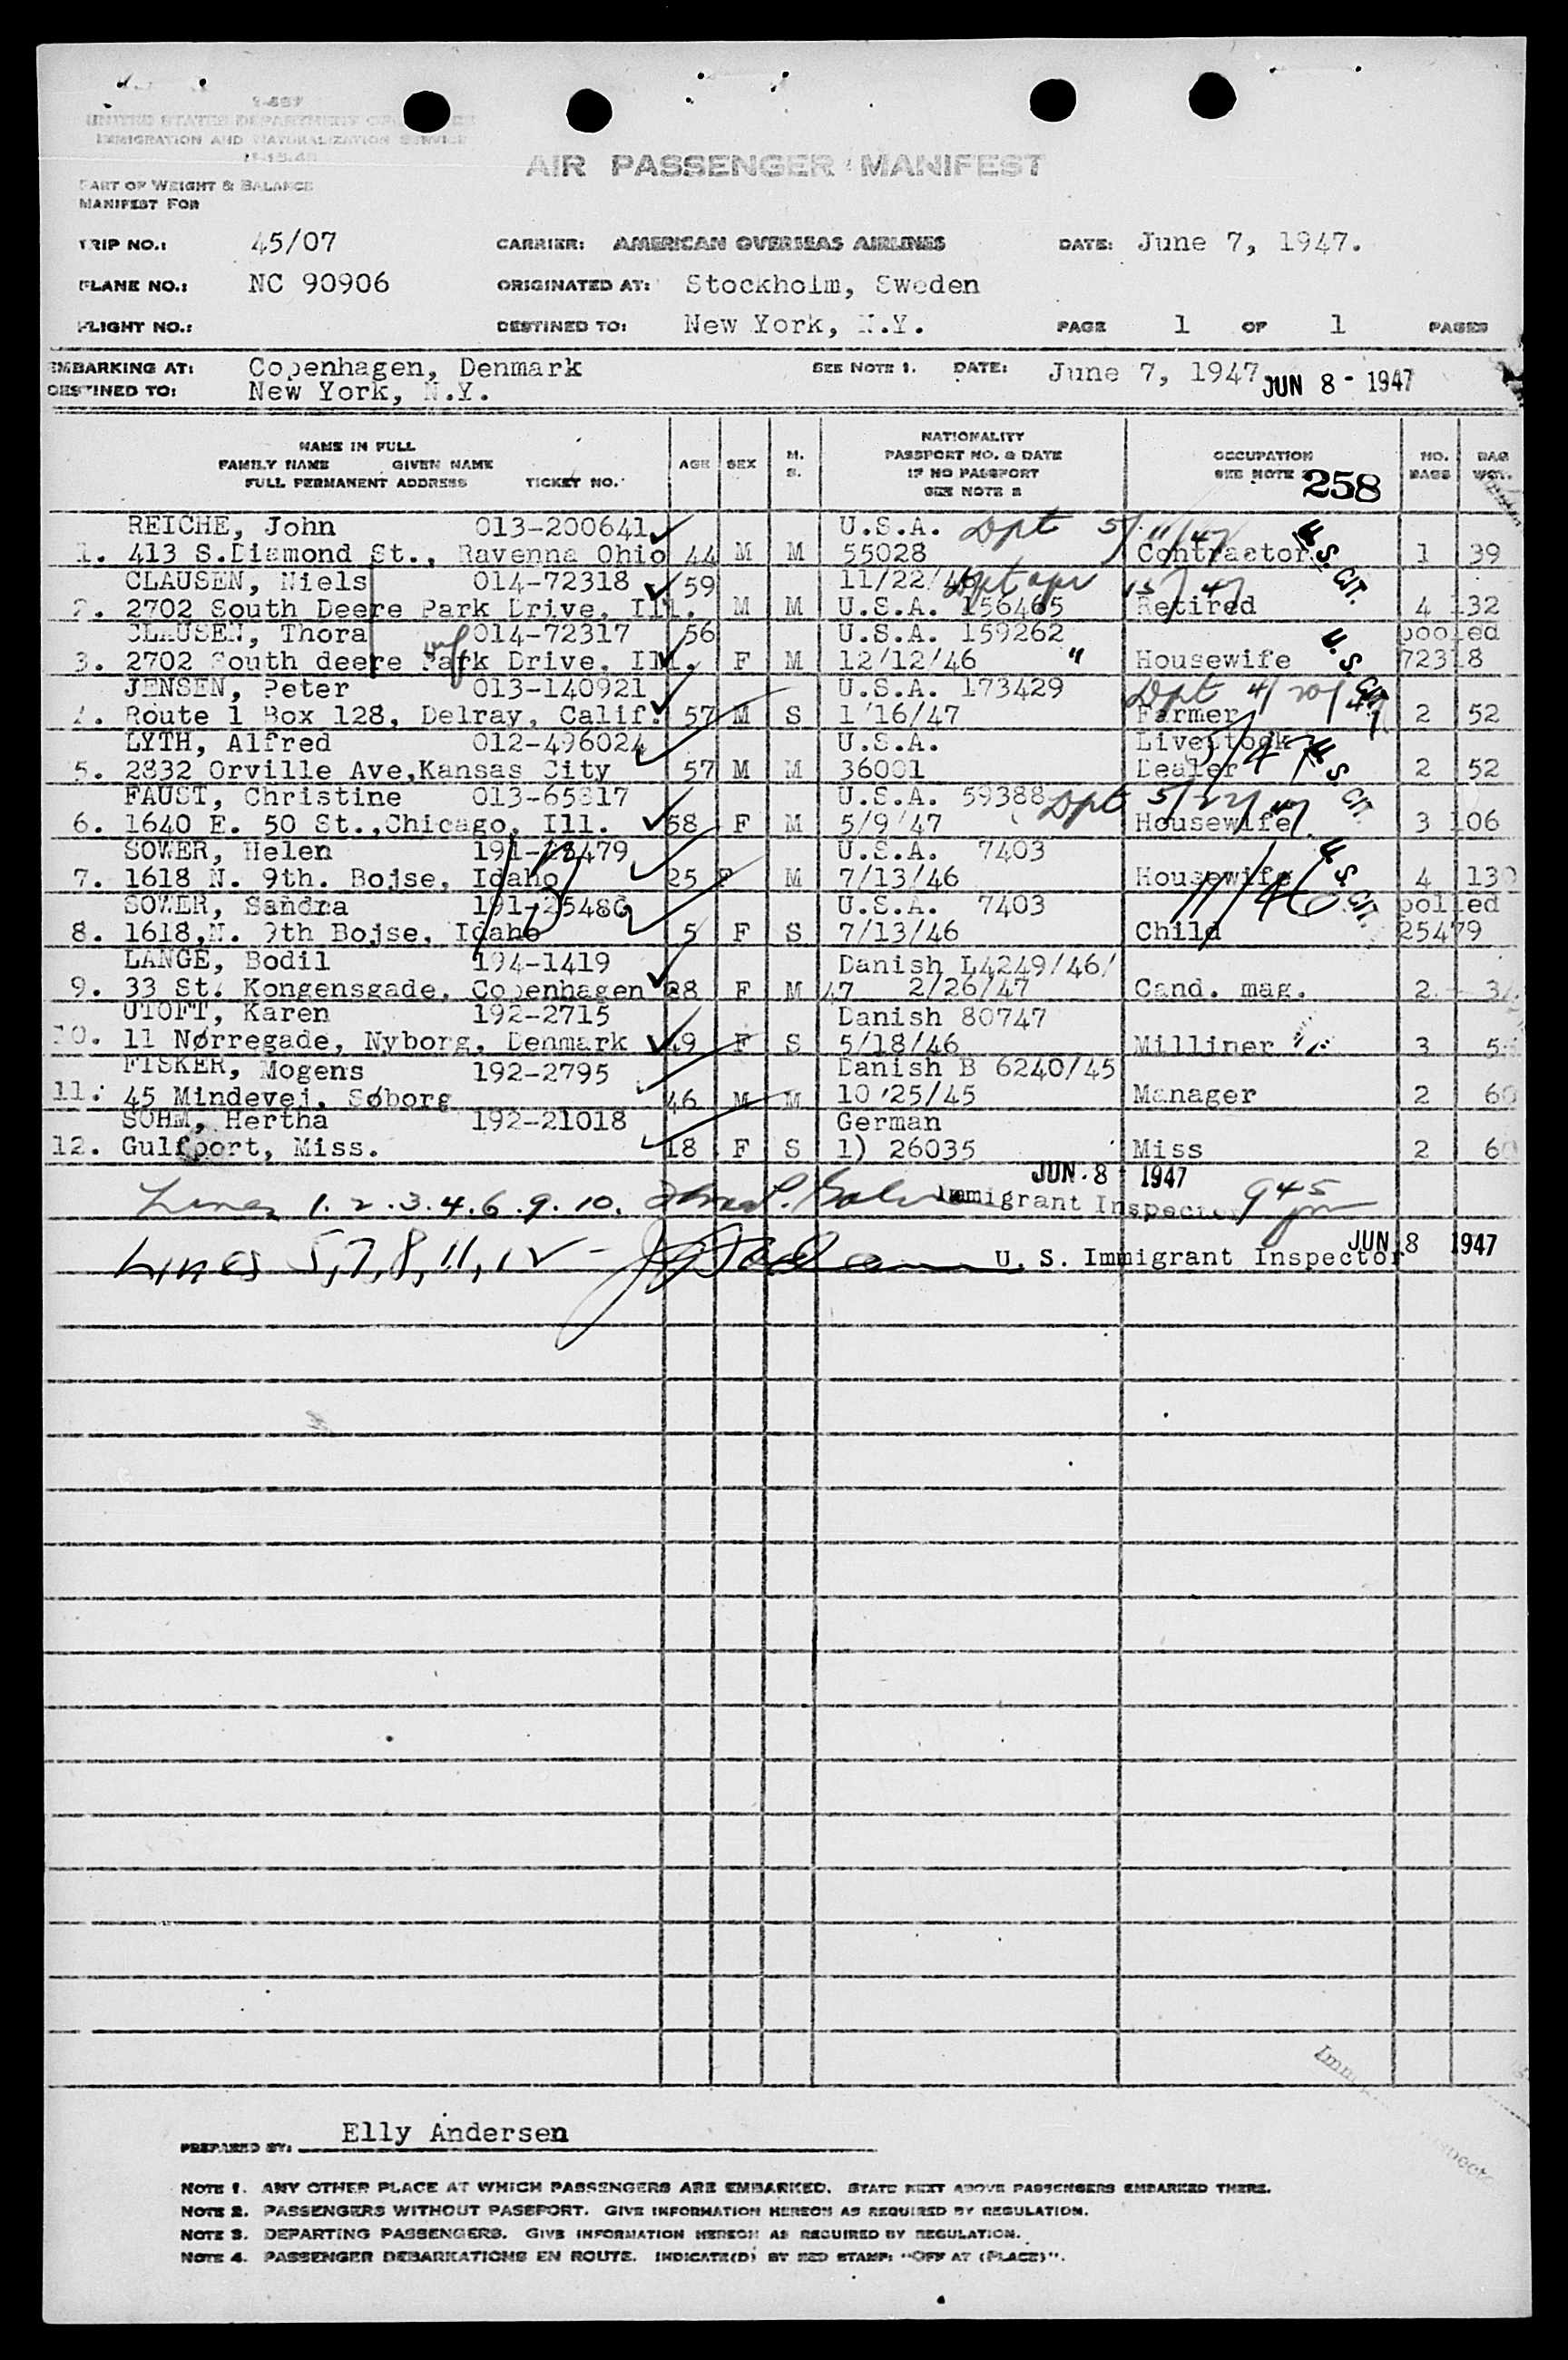 I-487
UNITED STATES DEPARTMENT OF
IMMIGRATION AND NATURALIZATION SERVICE
AIR PASSENGER MANIFEST
PART OF WEIGHT & BALANCE
MANIFEST FOR
TRIP NO.: 45/07 CARRIER: AMERICAN OVERSEAS AIRLINES DATE: June 7, 1947.
PLANE NO.: NC 90906 ORIGINATED AT: Stockholm, Sweden
FLIGHT NO.: DESTINED TO: New York, N.Y. PAGE 1 OF 1 PAGES
EMBARKING AT: Copenhagen, Denmark SEE NOTE 1. DATE: June 7, 1947
DESTINED TO: New York, N.Y. JUN 8 - 1947
NAME IN FULL
FAMILY NAME GIVEN NAME
FULL PERMANENT ADDRESS TICKET NO. AGE SEX M. S. NATIONALITY PASSPORT NO. & DATE IF NO PASSPORT SEE NOTE 2 OCCUPATION SEE NOTE 258 NO. BAGS BAG WGT.
REICHE, John 013-200641 U.S.A. Dpt 5/11/47 U.S. CIT.
1. 413 S.Diamond St., Ravenna Ohio 44 M M 55028 Contractor 1 39
CLAUSEN, Niels 014-72318 59 11/22/46 Dpt apr 15/47
2. 2702 South Deere Park Drive, Ill. M M U.S.A. 156465 Retired 4 132
CLAUSEN, Thora wf 014-72317 56 U.S.A. 159262 U.S. CIT. pooled
3. 2702 South deere Park Drive, Ill. F M 12/12/46 " Housewife 72318
JENSEN, Peter 013-140921 U.S.A. 173429 Dpt 4/20/47
4. Route 1 Box 128, Delray, Calif. 57 M S 1/16/47 Farmer 2 52
LYTH, Alfred 012-496024 U.S.A. Livestock U.S. CIT.
5. 2832 Orville Ave,Kansas City 57 M M 36001 Dealer 2 52
FAUST, Christine 013-65817 U.S.A. 59388 Dpt 5/22/47
6. 1640 E. 50 St.,Chicago, Ill. 58 F M 5/9/47 Housewife 3 106
SOWER, Helen 191-25479 U.S.A. 7403 U.S. CIT.
7. 1618 N. 9th. Bojse, Idaho 25 F M 7/13/46 Housewife 4 130
SOWER, Sandra 191-25480 U.S.A. 7403 11/46 polled
8. 1618,N. 9th Bojse, Idaho 5 F S 7/13/46 Child 25479
LANGE, Bodil 194-1419 Danish L4249/46/
9. 33 St. Kongensgade, Copenhagen 28 F M 47 2/26/47 Cand. mag. 2
UTOFT, Karen 192-2715 Danish 80747
10. 11 Nørregade, Nyborg, Denmark 49 F S 5/18/46 Milliner 3
FISKER, Mogens 192-2795 Danish B 6240/45
11. 45 Mindevej, Søborg 46 M M 10/25/45 Manager 2 60
SOHM, Hertha 192-21018 German
12. Gulfport, Miss. 18 F S 1) 26035 Miss 2 60
JUN 8 - 1947
Lines 1.2.3.4.6.9.10. Immigrant Inspector 9 45 pm
Lines 5,7,8,11,12 - U. S. Immigrant Inspector JUN 8 1947
PREPARED BY: Elly Andersen
NOTE 1. ANY OTHER PLACE AT WHICH PASSENGERS ARE EMBARKED. STATE NEXT ABOVE PASSENGERS EMBARKED THERE.
NOTE 2. PASSENGERS WITHOUT PASSPORT. GIVE INFORMATION HEREON AS REQUIRED BY REGULATION.
NOTE 3. DEPARTING PASSENGERS. GIVE INFORMATION HEREON AS REQUIRED BY REGULATION.
NOTE 4. PASSENGER DEBARKATIONS EN ROUTE. INDICATE(D) BY RED STAMP: "OFF AT (PLACE)".